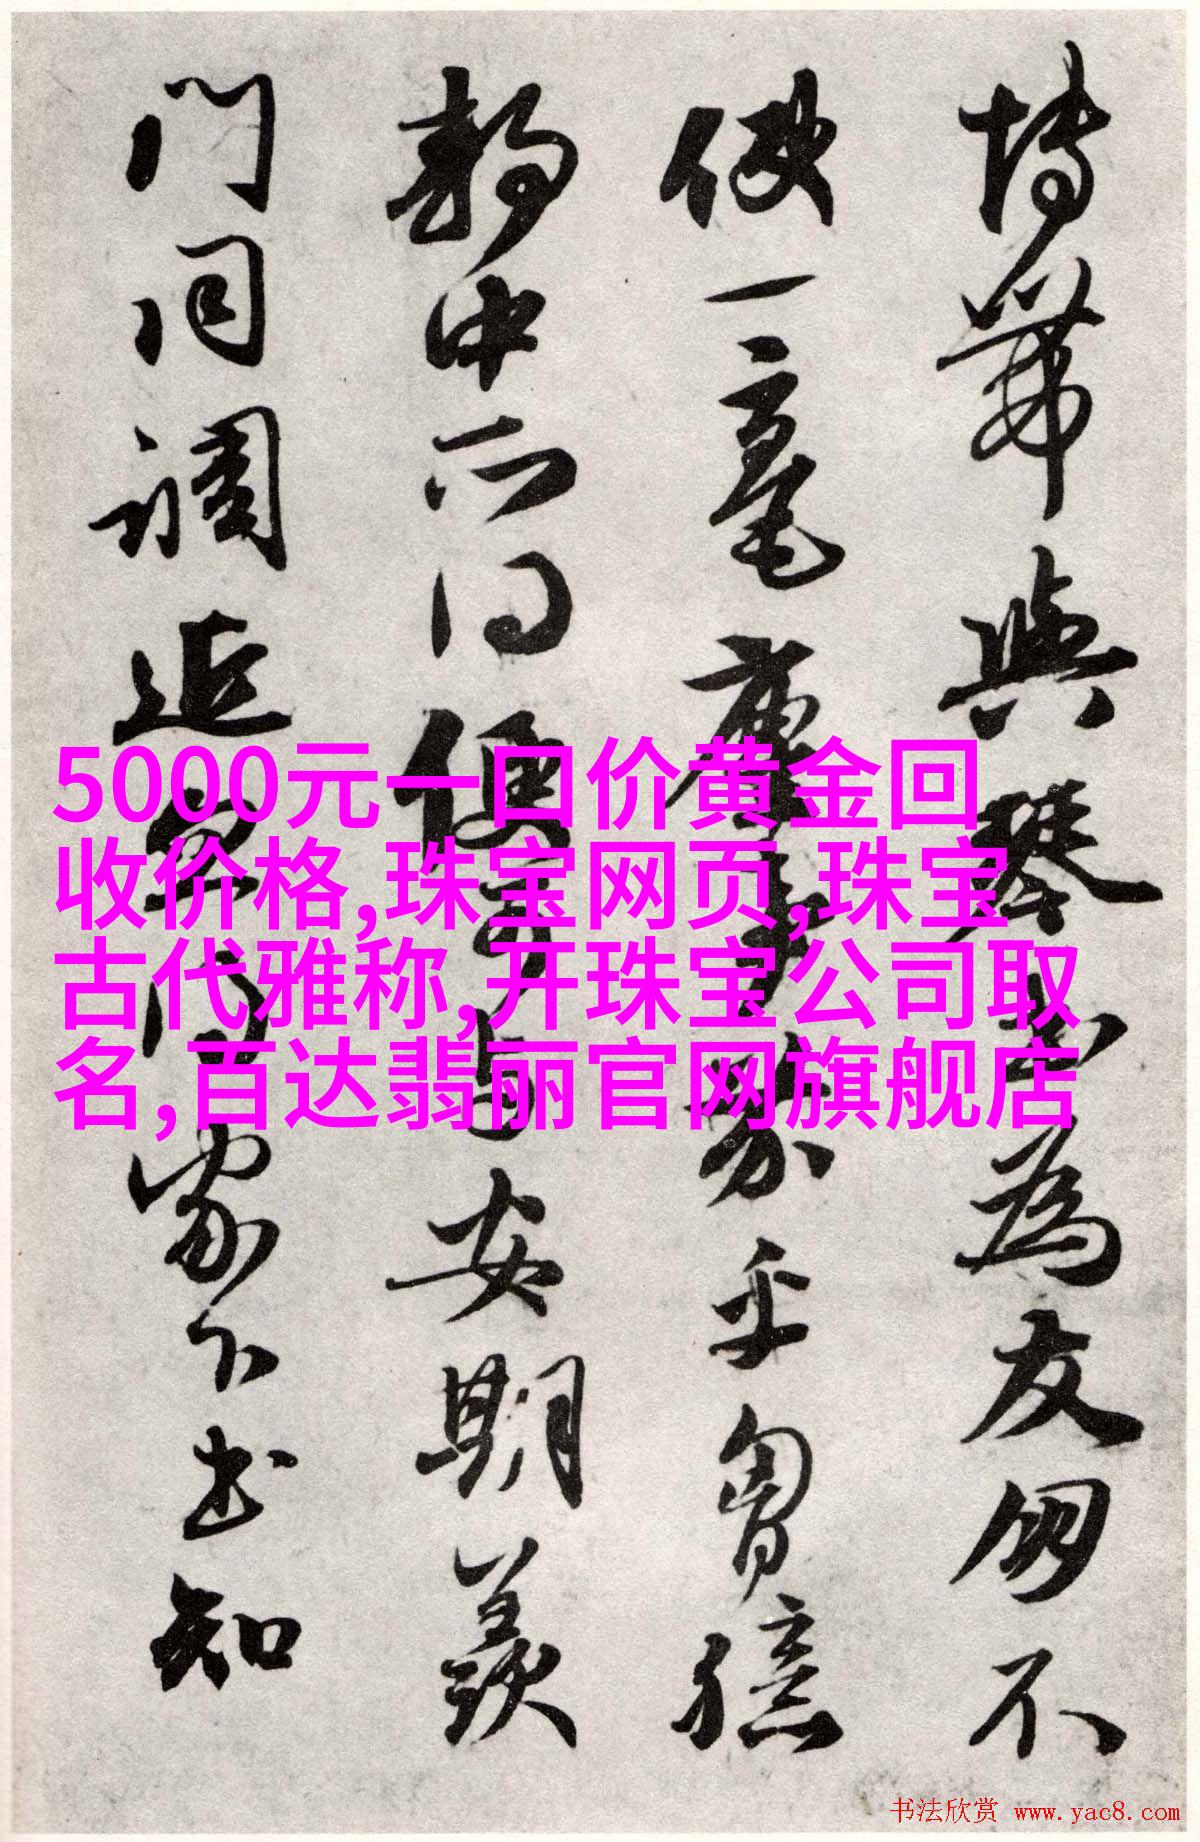 5000元一口价黄金回
收价格,珠宝网页,珠宝
古代雅称,开珠宝公司取
名,百达翡丽官网旗舰店
與琴書為友 不
使一毫塵事 乎胷臆
靜中所得便可与安期羨
門同調 家下 知
书法欣赏 www.yac8.com